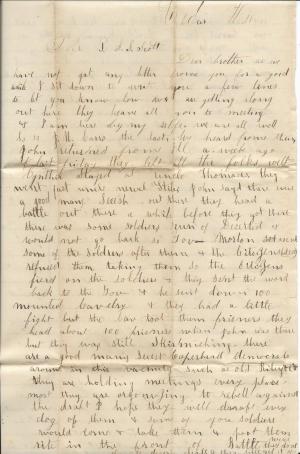 Dear brother as we
have not got any letter from you for a good
while I sit down to write you a few lines
to let you know how we are getting along
out here they have all gone to meeting
& I am here by my self we are all well
as is the cares the last we heard from them
John returned from Ill a week ago
last friday they left all the folks well
Cynthia stayed at uncle Thomases they
went just under neuval Stiles John says there was
a good many Secesh out there they had a
battle out there a while before they got there
there was some soldiers run of Deserted &
would not go back so Gov Morton sent
some of the soldiers after them & the Citizens
refused them taking them So the Citizens
fierd on the soldiers & they sent the word
back to the Gov & he sent down 100
mounted Cavelry & they had a little
fight but the cav took them prisoners they
had about 100 prisoners when John was there
but they was still Skirmishing there
are a good many Secesh Coperhead democrats
around in this vacinity such as old
they are holding meetings every place
most they are organising to rebell against
the draft I hope they will draft every
dog of them & some of you soldiers
would come & take them & put them
rite in the front of Battle